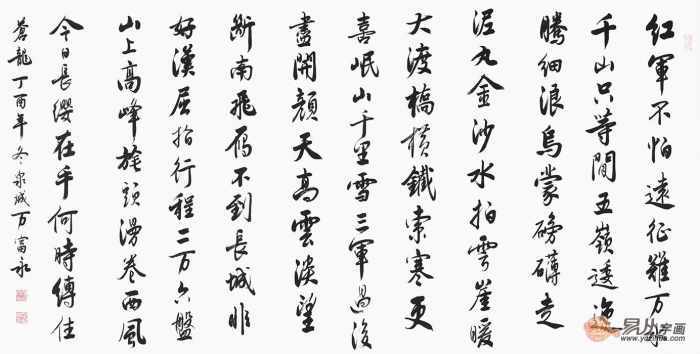 紅軍不怕遠征難万水
千山只等閒五嶺逶迤
騰細浪烏蒙磅礴走
泥丸金沙水拍雲崖暖
大渡橋橫鐵索寒更
喜岷山千里雪三軍過後
盡開顏天高雲淡望
斷南飛雁不到長城非
好漢屈指行程二万六盤
山上高峰旄頭漫卷西風
今日長纓在手何時縛住
蒼龍丁酉年冬泉城万富永
易从字画